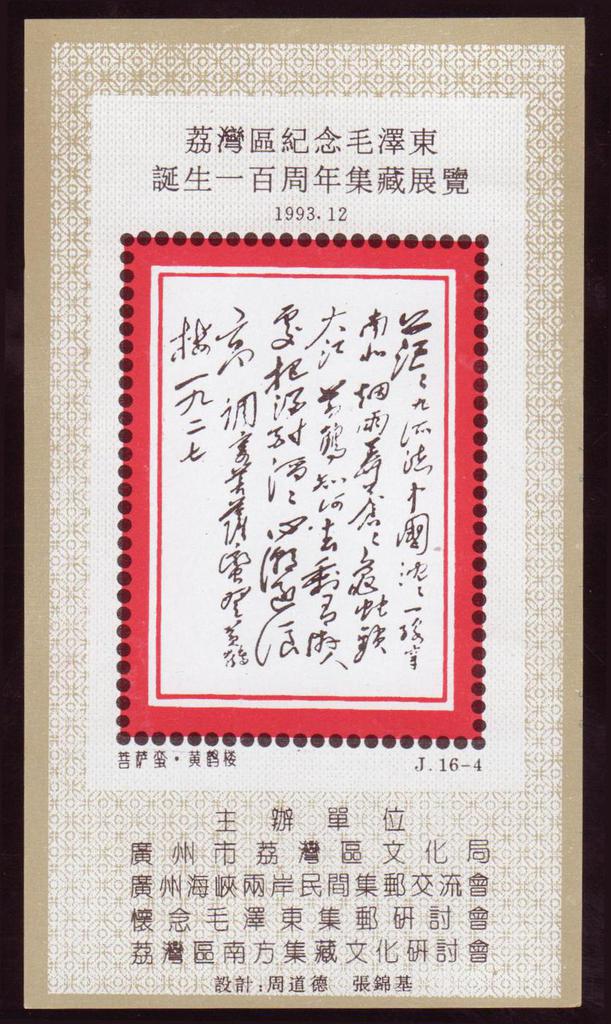 荔灣區紀念毛澤東
誕生一百周年集藏展覽
1993.12
茫茫九派流中國沉沉一線穿
南北烟雨莽蒼蒼龜蛇鎖
大江黃鶴知何去剩有遊人
處把酒酹滔滔心潮逐浪
高 調寄菩薩蠻登黃鶴
樓 一九二七
菩萨蛮·黄鹤楼
J.16-4
主辦單位
廣州市荔灣區文化局
廣州海峽兩岸民間集郵交流會
懷念毛澤東集郵研討會
荔灣區南方集藏文化研討會
設計:周道德 張錦基